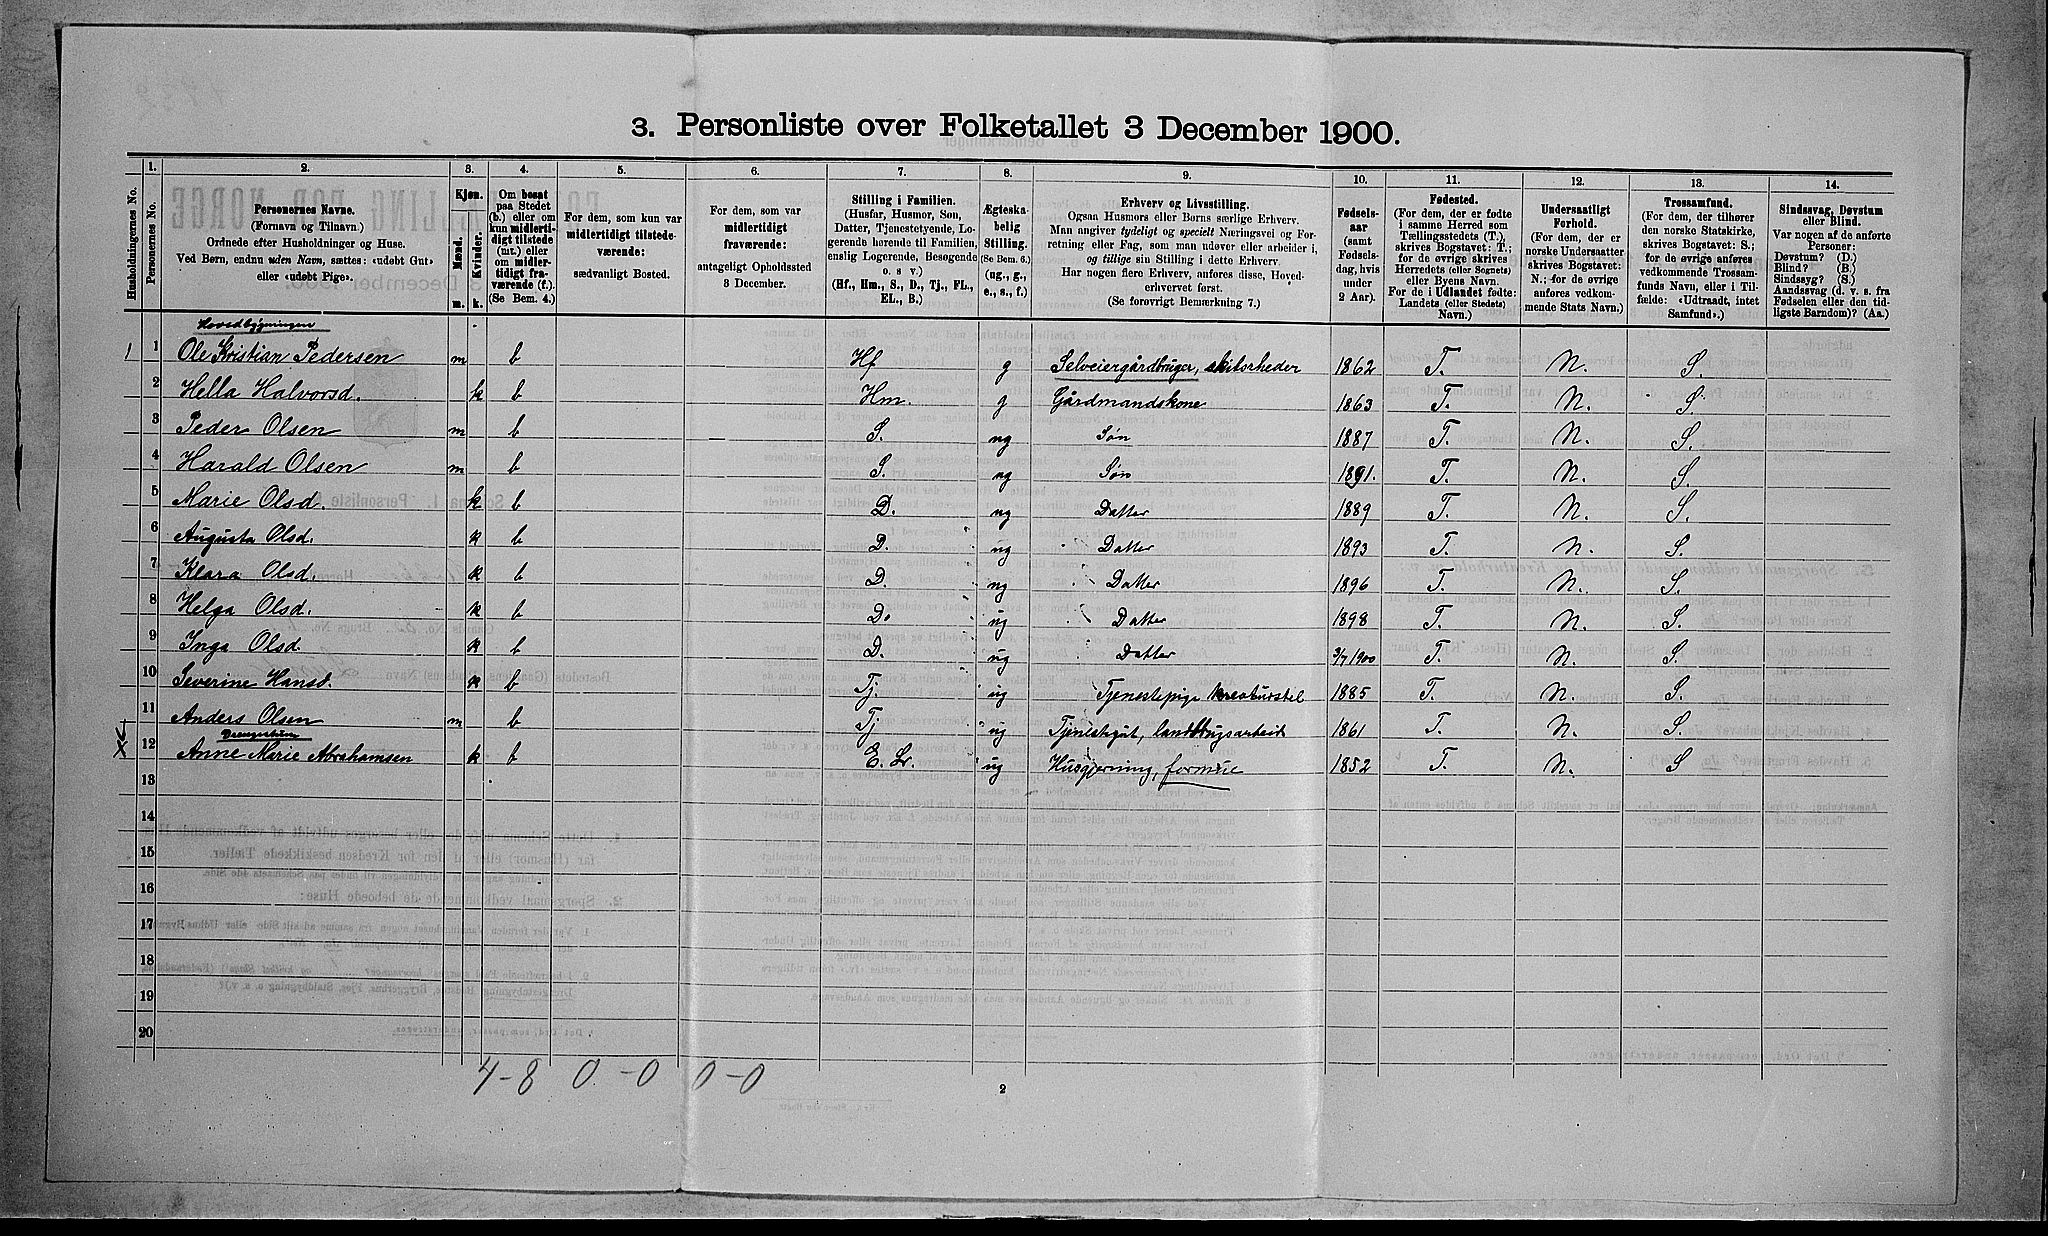 3. Personliste over Folketallet 3 December 1900.
1. 2. 3. 4. 5. 6. 7. 8. 9. 10. 11. 12. 13. 14.
Husholdningernes No.
Personernes No.
Personernes Navne.
(Fornavn og Tilnavn.)
Ordnede efter Husholdninger og Huse.
Ved Børn, endnu uden Navn, sættes: «udøbt Gut»
eller «udøbt Pige».
Kjøn.
Mænd. Kvinder.
m. k.
Om bosat
paa Stedet
(b.) eller om
kun midlerti-
digt tilstede
(mt.) eller
om midler-
tidigt fra-
værende (f.).
(Se Bem. 4.)
For dem, som kun var
midlertidigt tilstede-
værende:
sædvanligt Bosted.
For dem, som var
midlertidigt
fraværende:
antageligt Opholdssted
3 December.
Stilling i Familien.
(Husfar, Husmor, Søn,
Datter, Tjenestetyende, Lo-
gerende hørende til Familien,
enslig Logerende, Besøgende
o. s v.)
(Hf., Hm., S., D., Tj., FL.,
EL., B.)
Ægteska-
belig
Stilling.
(Se Bem. 6.)
(ug., g.,
e., s., f.)
Erhverv og Livsstilling.
Ogsaa Husmors eller Børns særlige Erhverv.
Man angiver tydeligt og specielt Næringsvei og For-
retning eller Fag, som man udøver eller arbeider i,
og tillige sin Stilling i dette Erhverv.
Har nogen flere Erhverv, anføres disse, Hoved-
erhvervet først.
(Se forøvrigt Bemærkning 7.)
Fødsels-
aar
(samt
Fødsels-
dag, hvis
under
2 Aar).
Fødested.
(For dem, der er fødte
i samme Herred som
Tællingsstedets (T.),
skrives Bogstavet: T.;
for de øvrige skrives
Herredets (eller Sognets)
eller Byens Navn.
For de i Udlandet fødte:
Landets (eller Stedets)
Navn.)
Undersaatligt
Forhold.
(For dem, der er
norske Undersaatter
skrives Bogstavet:
N.; for de øvrige
anføres vedkom-
mende Stats Navn.)
Trossamfund.
(For dem, der tilhører
den norske Statskirke,
skrives Bogstavet: S.;
for de øvrige anføres
vedkommende Trossam-
funds Navn, eller i Til-
fælde: «Udtraadt, intet
Samfund».)
Sindssvag, Døvstum
eller Blind.
Var nogen af de anførte
Personer:
Døvstum? (D.)
Blind? (B.)
Sindssyg? (S.)
Aandssvag (d. v. s. fra
Fødselen eller den tid-
ligste Barndom)? (Aa.)
Hovedbygningen
1 1 Ole Kristian Pedersen m b Hf g Selveiergårdbruger, 1862 T. N. S.
2 Hella Halvorsd. k b Hm. g Gårdmandskone 1863 T. N. S.
3 Peder Olsen m b S. ug Søn 1887 T. N. S.
4 Harald Olsen m b S. ug Søn 1891. T. N. S.
5 Marie Olsd. k b D. ug Datter 1889 T. N. S.
6 Augusta Olsd. k b D. ug Datter 1893 T. N. S.
7 Klara Olsd. k b D. ug Datter 1896 T. N. S.
8 Helga Olsd. k b D. ug Datter 1898 T. N. S.
9 Inga Olsd. k b D. ug Datter 3/7 1900 T. N. S.
10 Severine Hansd. k b Tj ug Tjenestepige kreaturstel 1885 T. N. S.
11 Anders Olsen m b Tj ug Tjenestegut, landbrugsarbeid 1861 T. N. S.
Drengestuen
12 Anne Marie Abrahamsen k b E. Lr. ug Husgjerning, formue 1852 T. N. S
13
14
15
16
17
18
19
20
4-8 0-0 0-0
2